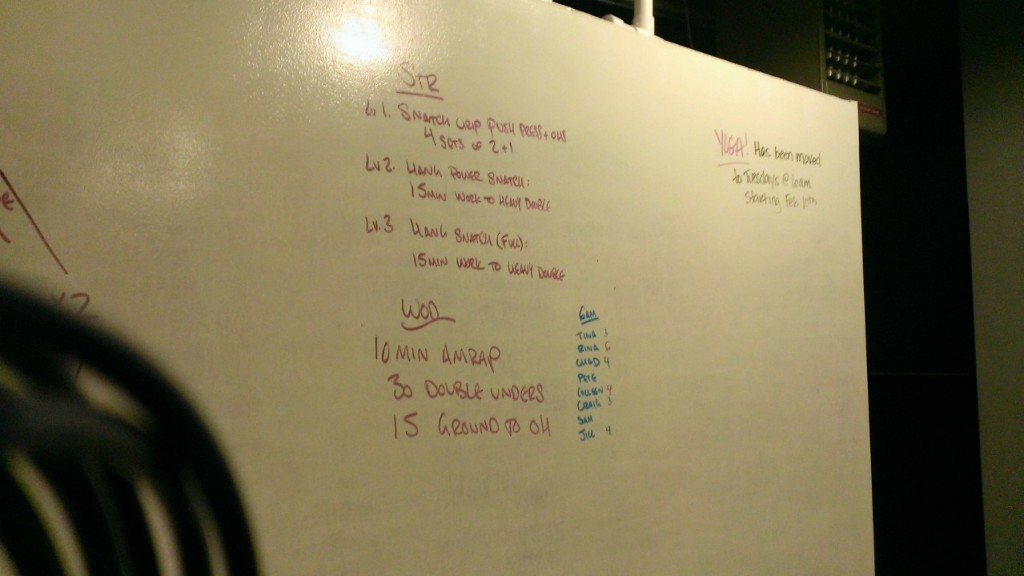 STR
Lv 1. SNATCH GRIP PUSH PRESS + OHS
4 SETS OF 2+1
Lv 2. HANG POWER SNATCH:
15 MIN WORK TO HEAVY DOUBLE
Lv. 3 HANG SNATCH (FULL):
15 MIN WORK TO HEAVY DOUBLE
WOD
10 MIN AMRAP
30 DOUBLE UNDERS
15 GROUND TO OH
6AM
TINA 3
CHAD 4
PETE
COLLEEN 4
CRAIG
SAM
JILL 4
YOGA! Has been moved
to Tuesdays @ 6am
Starting Feb
X2